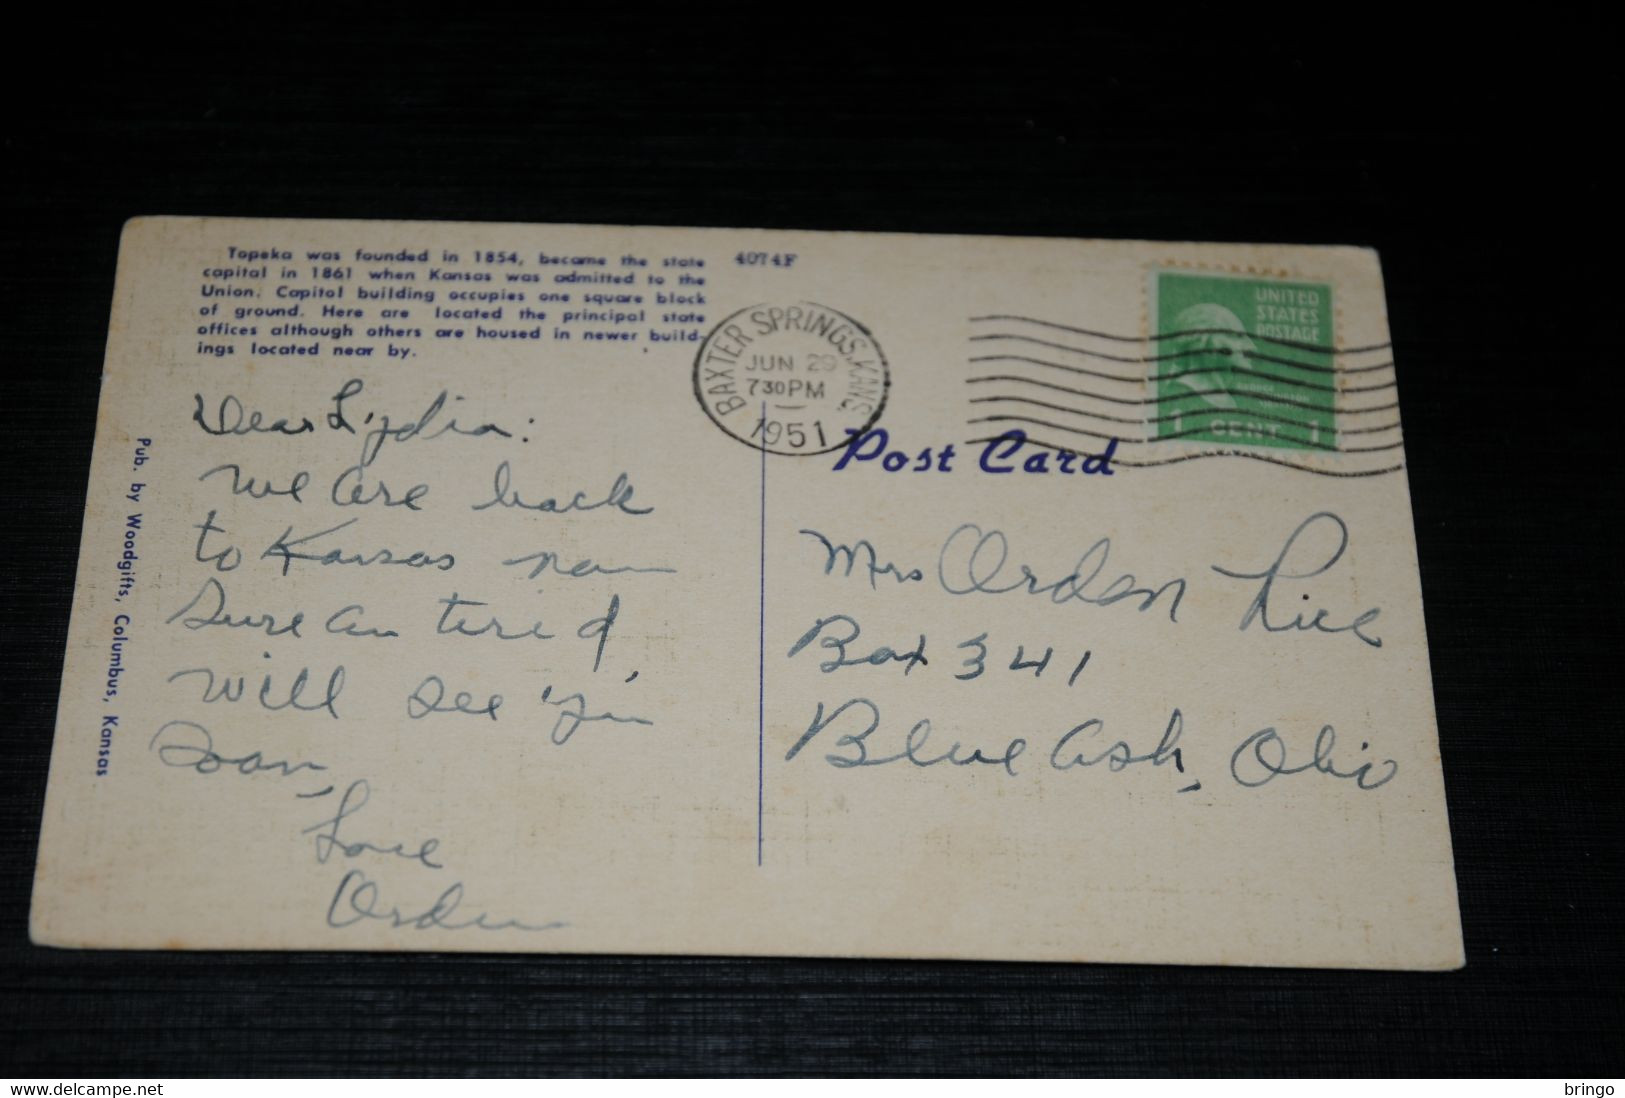 Topeka was founded in 1854, became the state
capital in 1861 when Kansas was admitted to the
Union. Capitol building occupies one square block
of ground. Here are located the principal state
offices although others are housed in newer build-
ings located near by.
4074F
BAXTER SPRINGS, KANS.
JUN 29
7 30 PM
1951
UNITED
STATES
POSTAGE
1 CENT 1
Post Card
Pub. by Woodgifts, Columbus, Kansas
Dear Lydia:
we are back
to Kansas now
Sure am tired
will see you
soon,
Love
Orden
Mrs Orden Rice
Box 341
Blue Ash, Ohio
www.delcampe.net
bringo